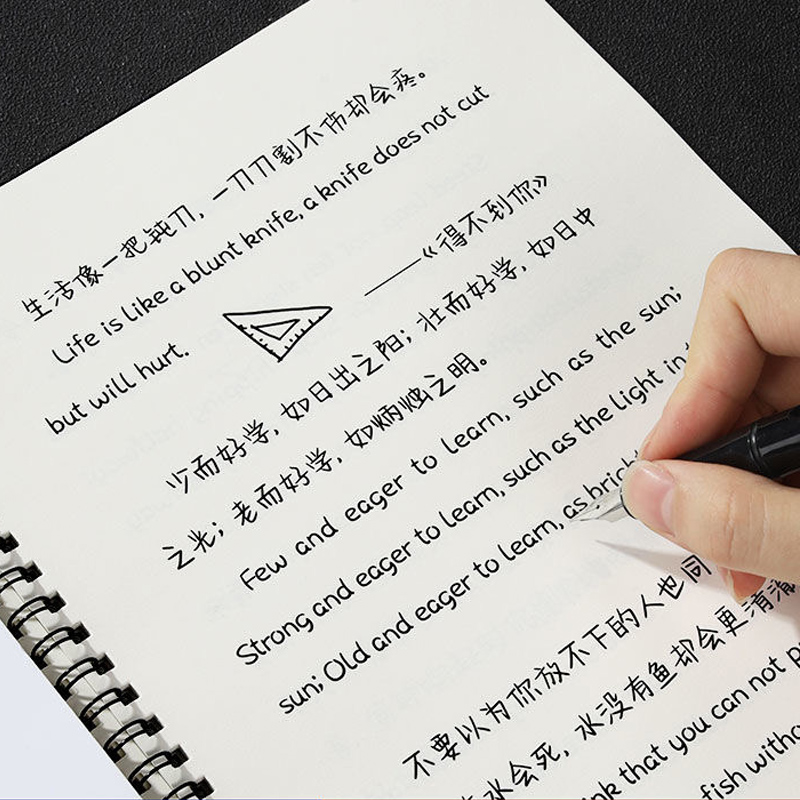 生活像一把钝刀，一刀刀割不伤却会疼。
Life is like a blunt knife, a knife does not cut
but will hurt.
——《得不到你》
少而好学，如日出之阳；壮而好学，如日中
之光；老而好学，如炳烛之明。
Few and eager to learn, such as the sun;
Strong and eager to learn, such as the light in
sun; Old and eager to learn, as bright
不要以为你放不下的人也同
水会死，水没有鱼却会更清
that you can not
fish